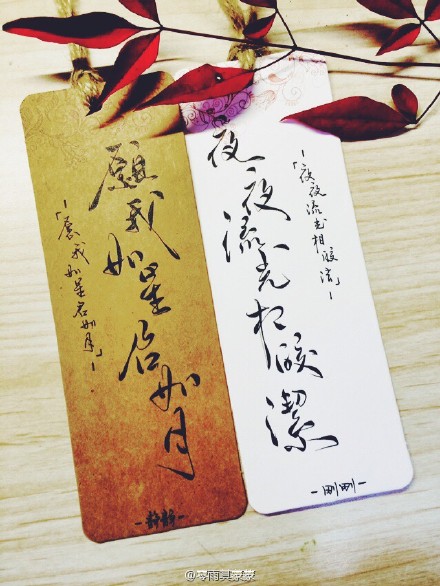 願我如星君如月
-「愿我如星君如月」-
-静静-
夜夜流光相皎潔
-「夜夜流光相皎洁」-